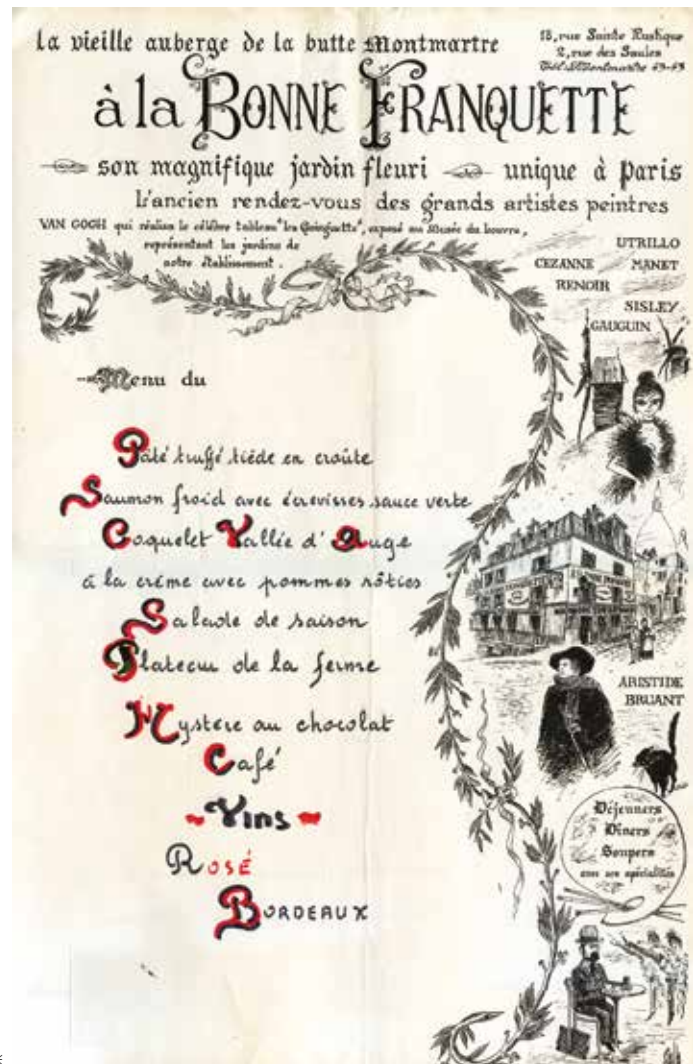 La vieille auberge de la butte Montmartre
18, rue Sainte Rustique
2, rue des Saules
à la BONNE FRANQUETTE
son magnifique jardin fleuri unique à Paris
L'ancien rendez-vous des grands artistes peintres
VAN GOGH qui réalisa le célèbre tableau "les Guinguette", exposé au Musée du Louvre,
représentant les jardins de
notre établissement.
UTRILLO
CEZANNE MANET
RENOIR
SISLEY
GAUGUIN
Menu du
Pâté truffé tiède en croûte
Saumon froid avec écrevisses sauce verte
Coquelet Vallée d'Auge
à la crème avec pommes rôties
Salade de saison
Plateau de la ferme
Mystère au chocolat
Café
Vins
Rosé
BORDEAUX
ARISTIDE
BRUANT
Déjeuners
Dîners
Soupers
avec ses spécialités